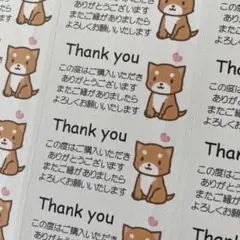 ありがとうございます
またご縁がありましたら
よろしくお願いいたします
Thank you
この度はご購入いただき
ありがとうございます
またご縁がありましたら
よろしくお願いいたします
Thank you
この度はご購入いただき
ありがとうございます
またご縁がありましたら
よろしくお願いします
Thank you
この度はご購入いただき